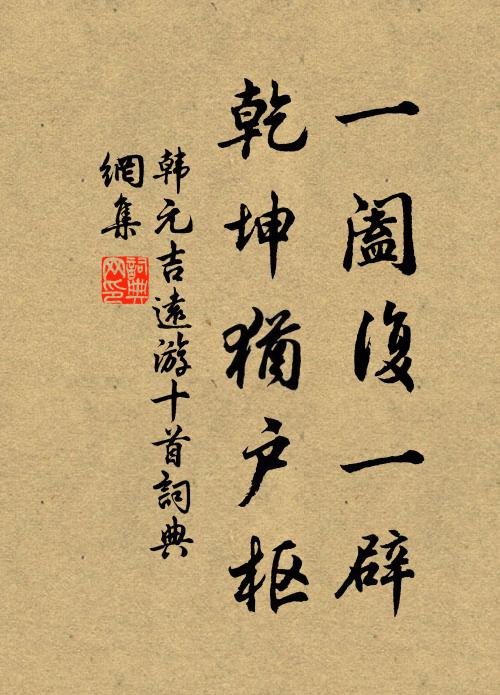 一阖復一辟
乾坤猶户枢
韩元吉遠游十首詞典
網集
詞典网印